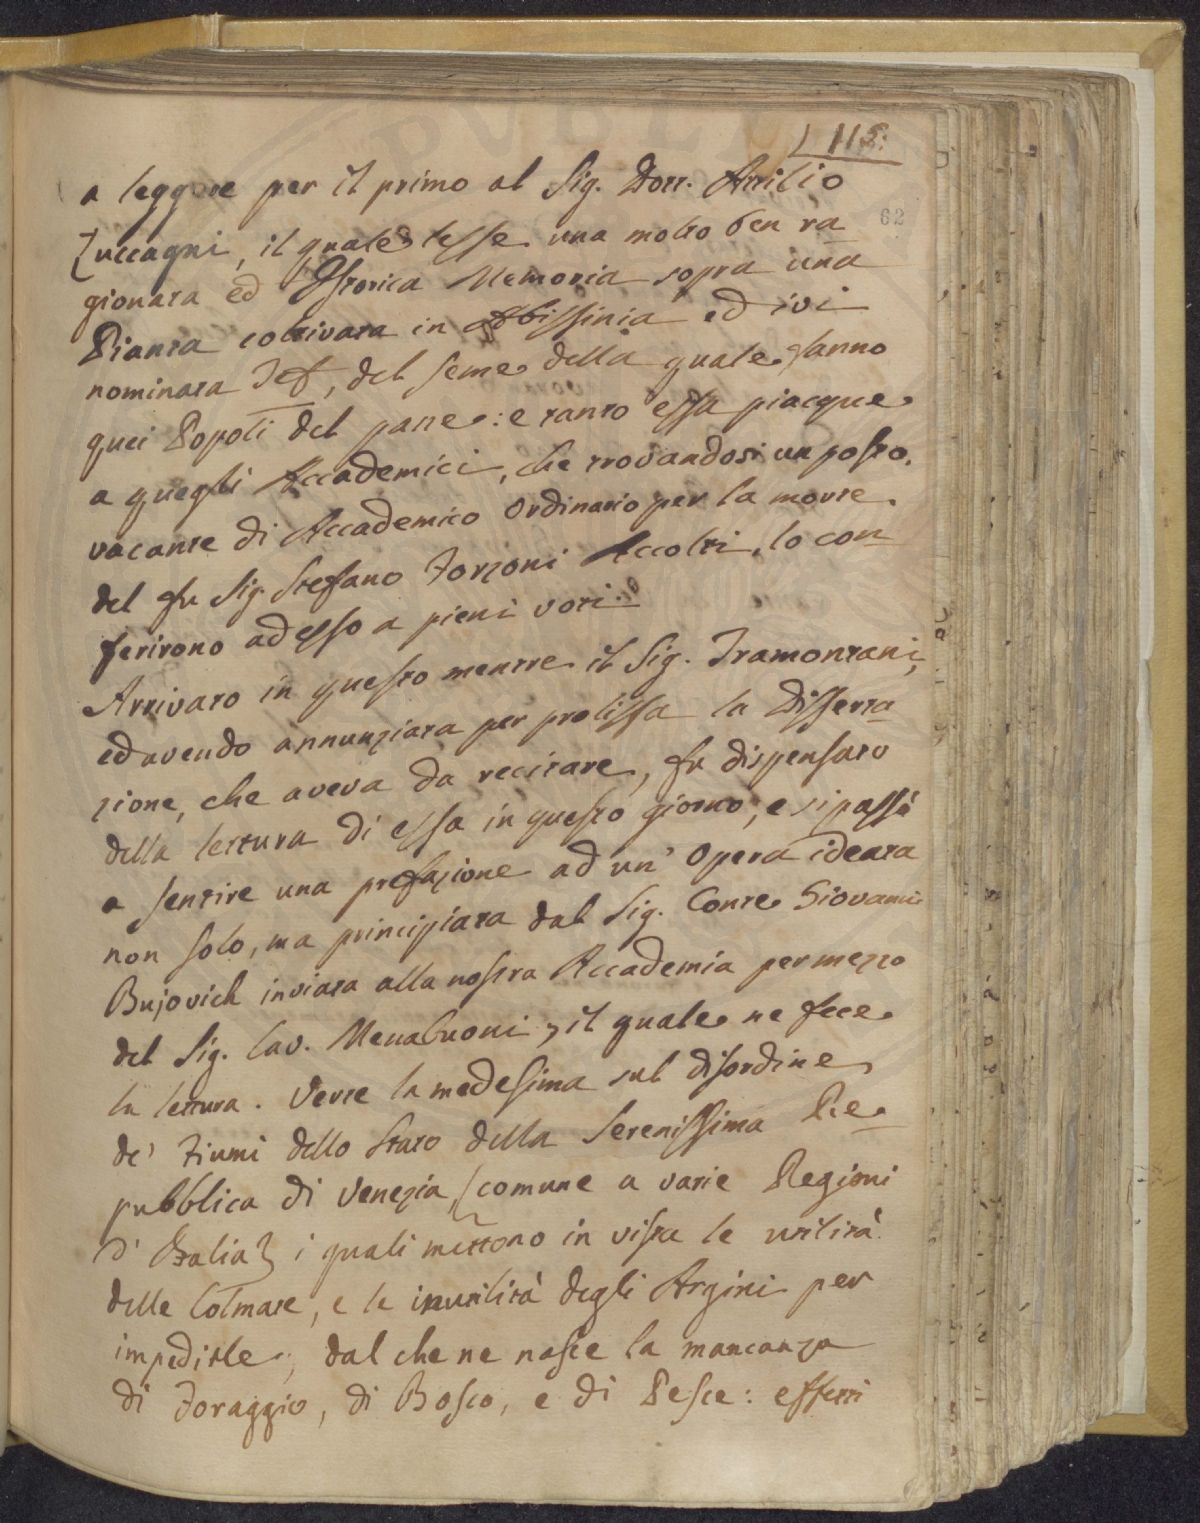 115.
62
a leggere per il primo al Sig. Dott. Attilio
Zuccagni, il quale lesse una molto ben ra
gionata ed Istorica Memoria sopra una
Pianta coltivata in Abissinia ed ivi
nominata Tef, del seme della quale fanno
quei Popoli del pane: e tanto essa piacque
a quegli Accademici, che trovandosi un posto
vacante di Accademico Ordinario per la morte
del fu Sig. Stefano Forzoni Accolti, lo con
ferirono ad esso a pieni voti.
Arrivato in questo mentre il Sig. Tramontani,
ed avendo annunziata per prolissa la Disserta
zione, che aveva da recitare, fu dispensato
della lettura di essa in questo giorno, e si passò
a sentire una prefazione ad un' Opera ideata
non solo, ma principiata dal Sig. Conte Giovanni
Bujovich inviata alla nostra Accademia per mezzo
del Sig. Cav. Menabuoni, il quale ne fece
la lettura. Verte la medesima sul disordine
de' Fiumi dello Stato della Serenissima Re
pubblica di Venezia, (comune a varie Regioni
d' Italia) i quali mettono in vista le utilità
delle Colmate, e le inutilità degli Argini per
impedirle, dal che ne nasce la mancanza
di Foraggio, di Bosco, e di Pesce: effetti